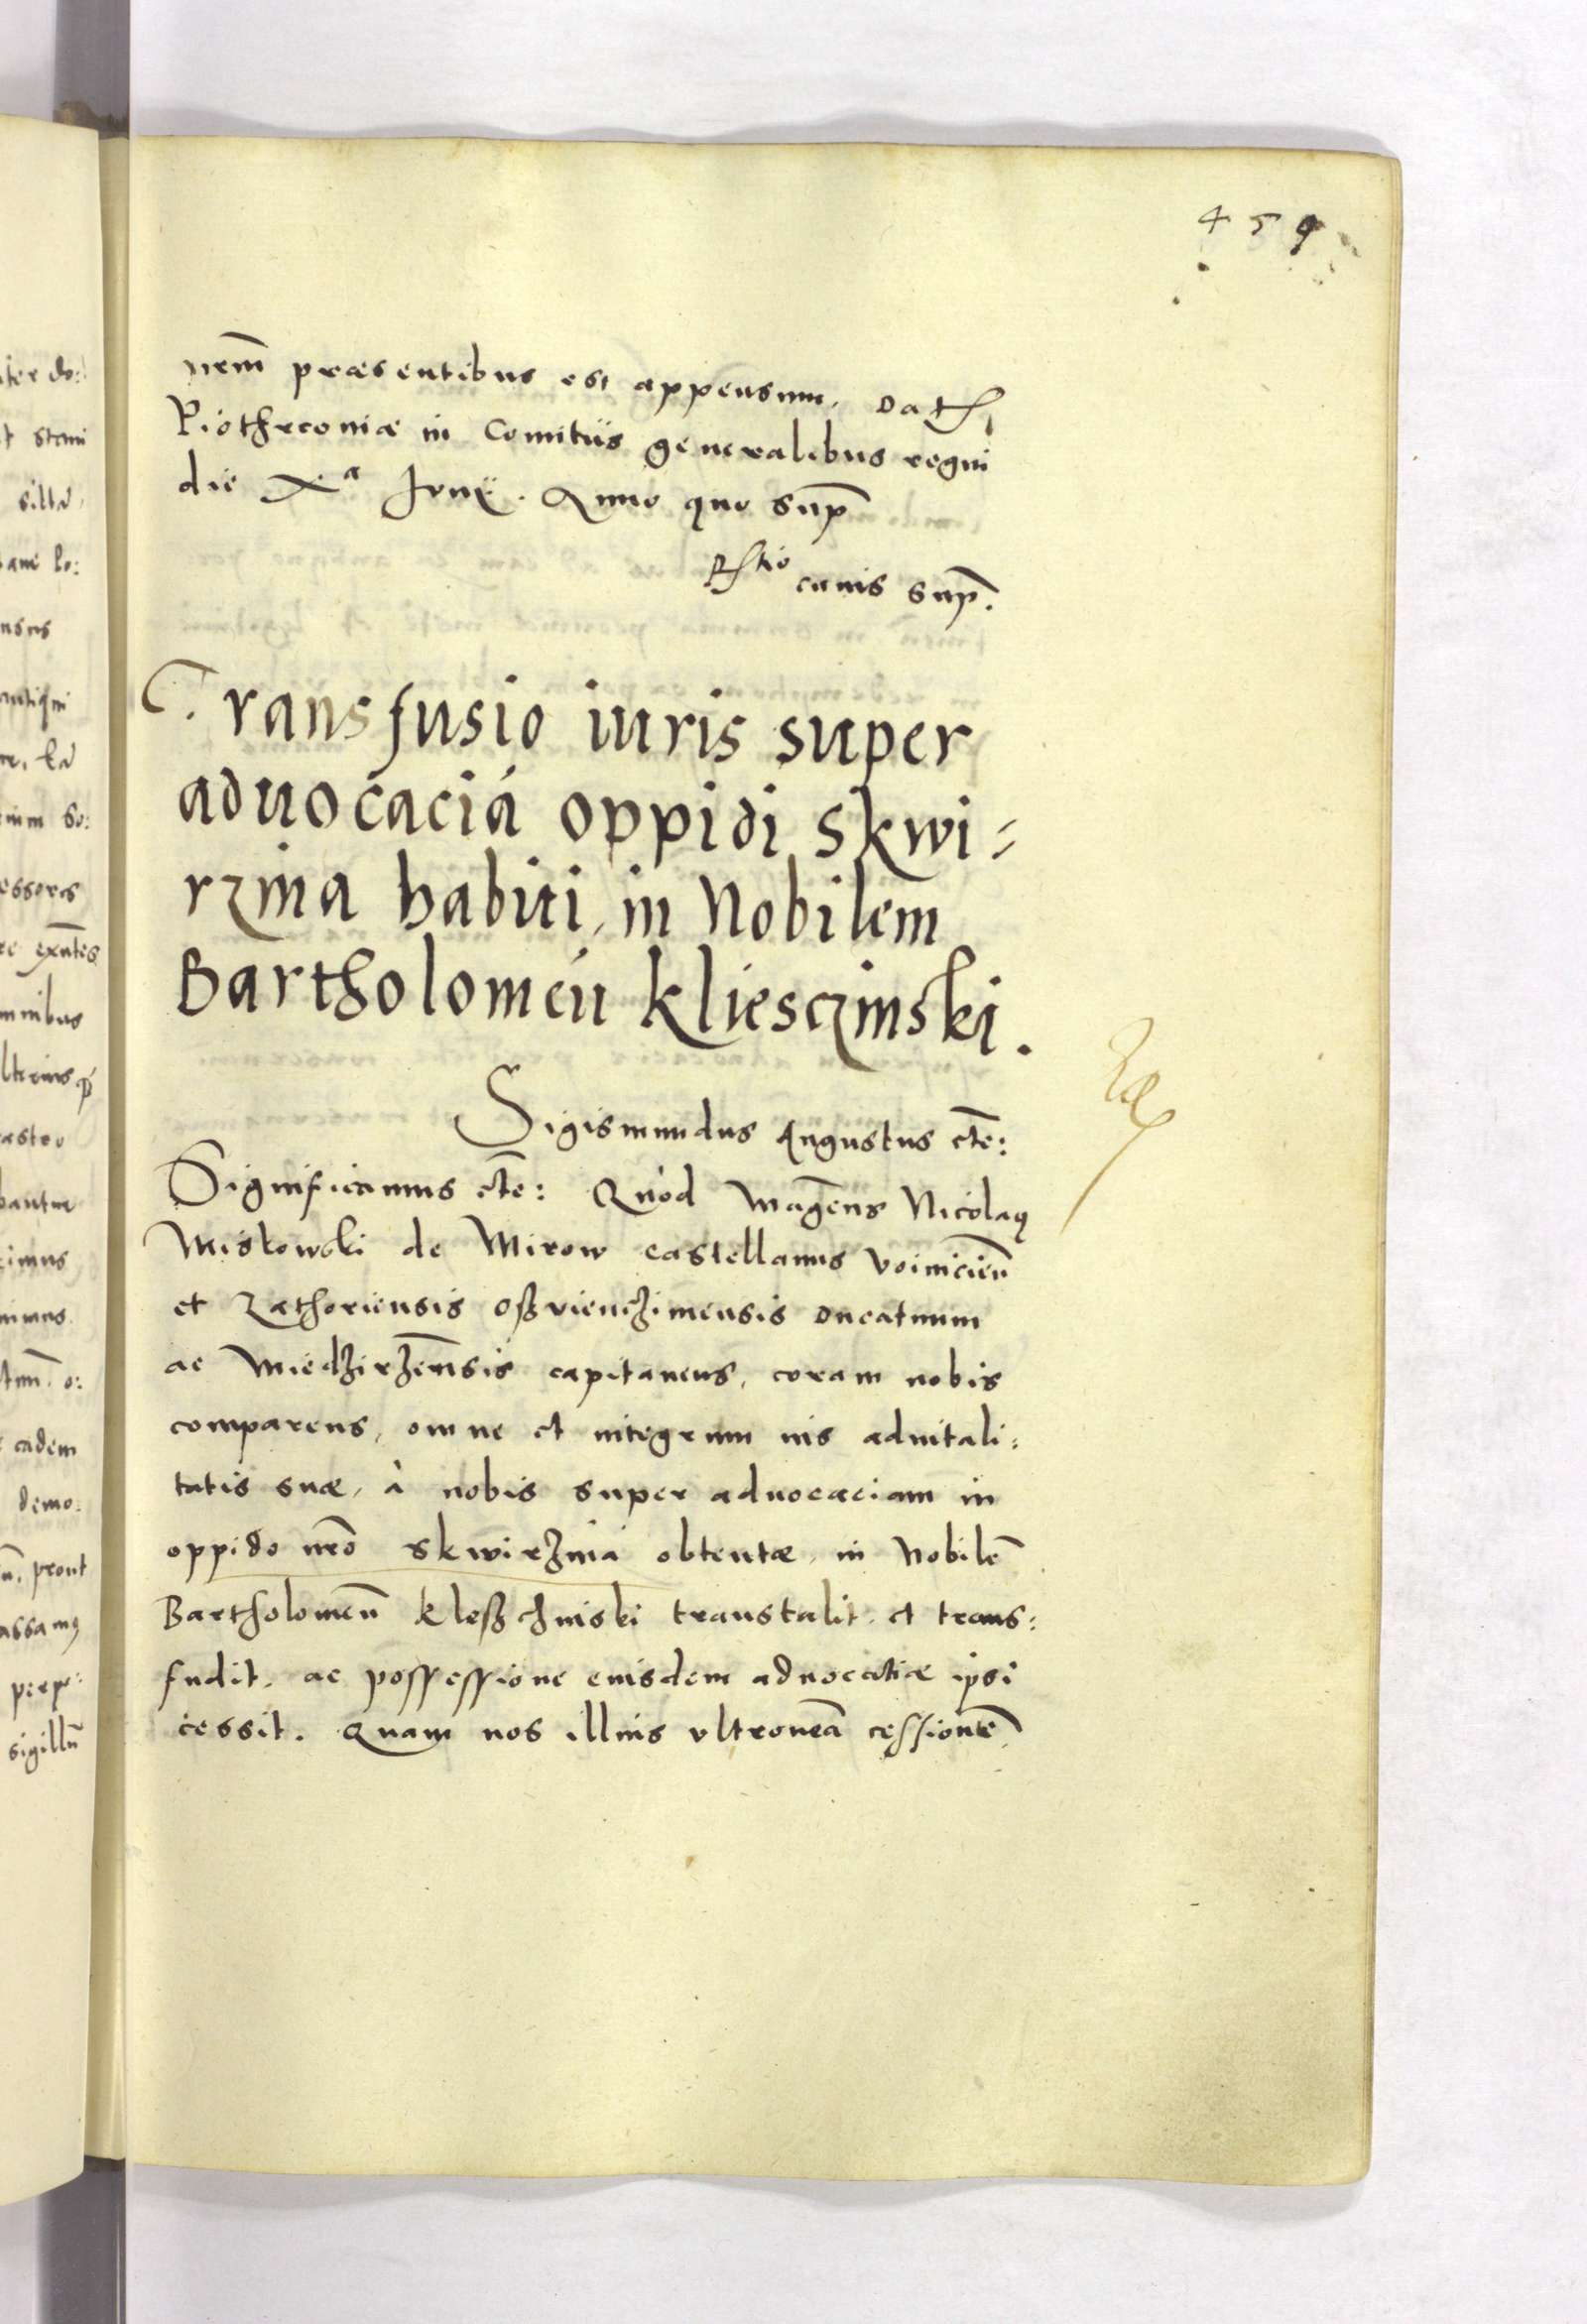 459
nrm̄ præsentibus est appensum. Dat
Piothrconiæ in Comitiis generalibus regni
die Xª Junij. Anno quo sup̄
Rtio cuius sup̄.
Transfusio iuris super
aduocaciā oppidi Skwi=
rzina habiti, in Nobilem
Bartholomeū Kliesczinski.
Sigismundus Augustus etc̄:
Significamus etc̄: Quòd Magcus Nicolaus
Miskowski de Mirow castellanus Voinicień
et Zathoriensis Oßvienchimensis Ducatuum
ac Miedzirzensis capitaneus, coram nobis
comparens, omne et integrum ius aduitali=
tatis suæ, à nobis super aduocaciam in
oppido nrō Skwirzina obtentæ, in Nobilē
Bartholomeū Kleßchinski transtulit et trans=
fudit, ac possessione eiusdem aduocatiæ ipsi
cessit. Quam nos illius vltroneā cessionē
iter do:
t stani
silla
am lo:
nsus
antiqui
nim so:
essores
re exn̄tes
mnibus
lterius
astro
bantur
cimus
nimus
tum̄ o:
eadem
demo:
prout
assamus
perpe:
sigillū